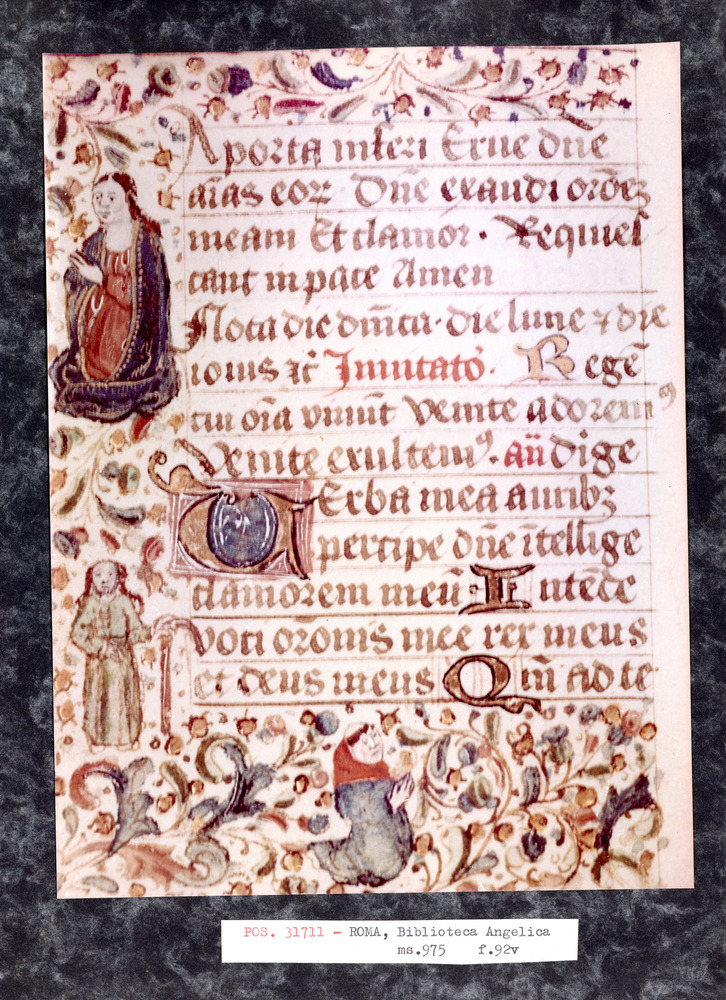 A porta inferi Erue dñe
aĩas eoꝝ Dñe exaudi orõeȝ
meam Et clamor · Requies
cant in pace Amen
Nota die dñica · die lune ⁊ die
iouis ꝛc̃ Inuitatoꝰ. Regẽ
cui oĩa uiuũt Venite adoremꝰ
Venite exultemꝰ. añ Dige
Verba mea auribȝ
percipe dñe ĩtellige
clamorem meũ · Intẽde
uoci orõnis mee rex meus
et deus meus Qm̃ ad te
POS. 31711 - ROMA, Biblioteca Angelica
ms.975 f.92v